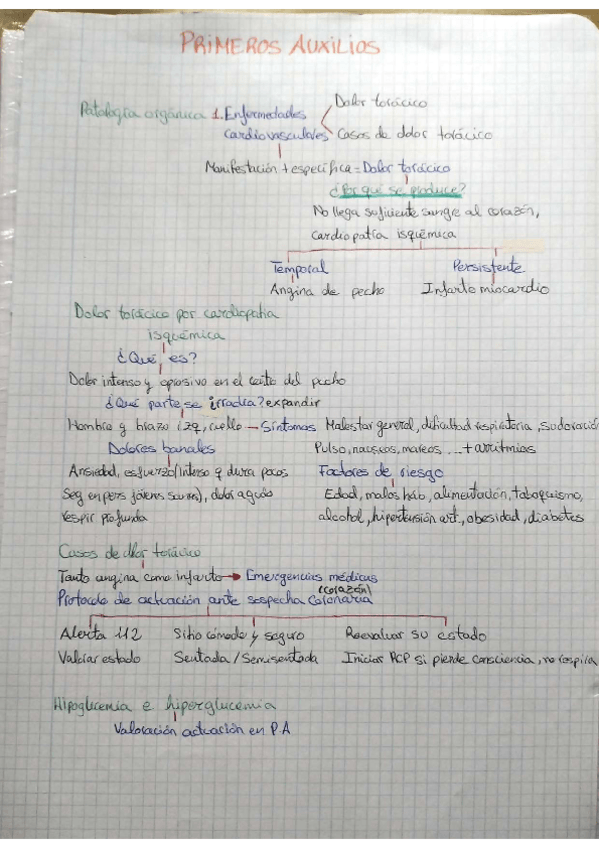 PRIMEROS AUXILIOS
Patología orgánica 1. Enfermedades cardiovasculares
Dolor torácico
Casos de dolor torácico
Manifestación + específica = Dolor torácico
¿Por qué se produce?
No llega suficiente sangre al corazón,
cardiopatía isquémica
Temporal Persistente
Angina de pecho Infarto miocardio
Dolor torácico por cardiopatía
isquémica
¿Qué es?
Dolor intenso y opresivo en el centro del pecho
¿Qué parte se irradia? expandir
Hombro y brazo izq, cuello – Síntomas Malestar general, dificultad respiratoria, sudoración
Dolores banales Pulso, nauseas, mareos ... + arritmias
Ansiedad, esfuerzo (intenso y dura pocos Factores de riesgo
seg en pers jóvenes sanas), dolor agudo Edad, malos háb, alimentación, tabaquismo,
respir profunda alcohol, hipertensión art., obesidad, diabetes
Casos de dolor torácico
Tanto angina como infarto → Emergencias médicas
(corazón)
Protocolo de actuación ante sospecha coronaria
Alerta 112 Sitio cómodo y seguro Reevaluar su estado
Valorar estado Sentada/Semisentada Iniciar RCP si pierde consciencia, no respira
Hipoglicemia e hiperglucemia
Valoración actuación en P.A